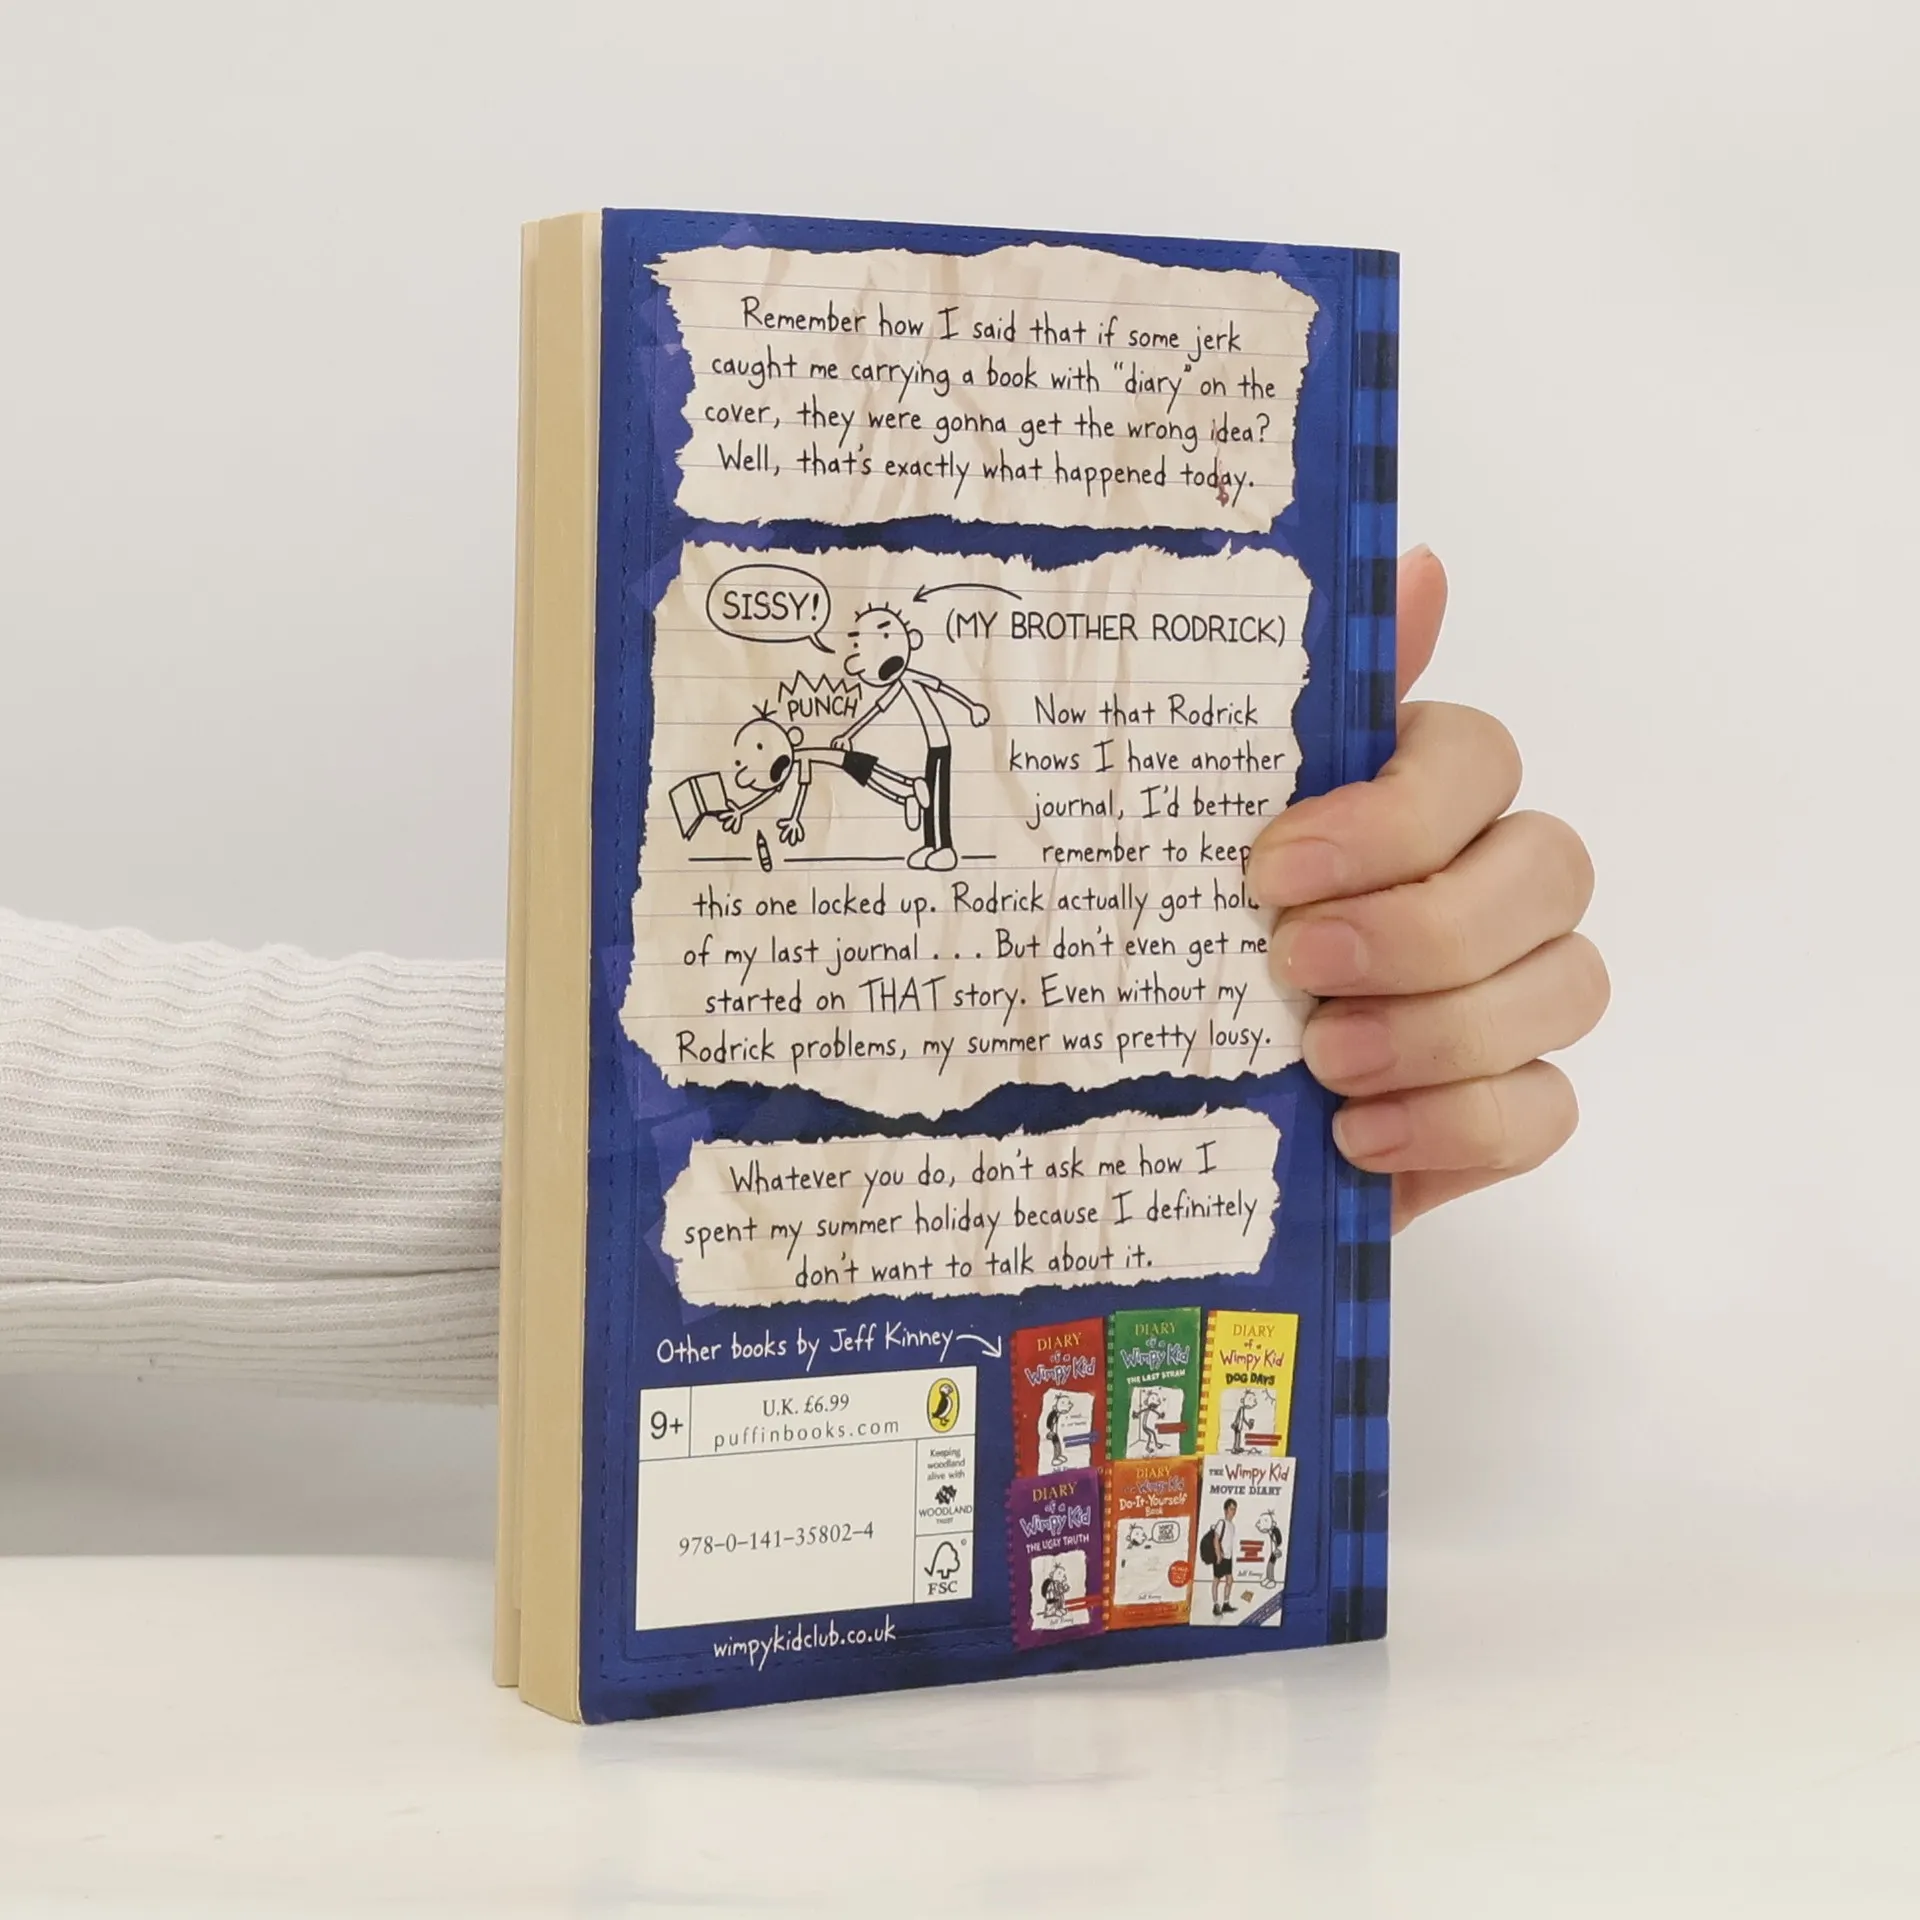 Remember how I said that if some jerk
caught me carrying a book with "diary" on the
cover, they were gonna get the wrong idea?
Well, that's exactly what happened today.
SISSY!
(MY BROTHER RODRICK)
PUNCH
Now that Rodrick
knows I have another
journal, I'd better
remember to keep
this one locked up. Rodrick actually got hol
of my last journal . . . But don't even get me
started on THAT story. Even without my
Rodrick problems, my summer was pretty lousy.
Whatever you do, don't ask me how I
spent my summer holiday because I definitely
don't want to talk about it.
Other books by Jeff Kinney
9+
U.K. £6.99
puffinbooks.com
Keeping
woodland
alive with
WOODLAND
TRUST
978-0-141-35802-4
FSC
wimpykidclub.co.uk
DIARY
of a
Wimpy Kid
DIARY
of a
Wimpy Kid
THE LAST STRAW
DIARY
of a
Wimpy Kid
DOG DAYS
DIARY
of a
Wimpy Kid
THE UGLY TRUTH
DIARY
of a Wimpy Kid
Do-It-Yourself
Book
THE Wimpy Kid
MOVIE DIARY
Jeff Kinney